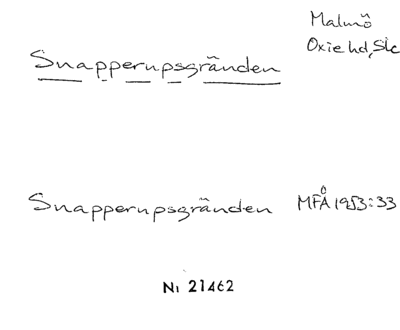 Malmö
Oxie hd, Sk
Snapperupsgränden
Snapperupsgränden MFÅ 1953:33
Ni 21462